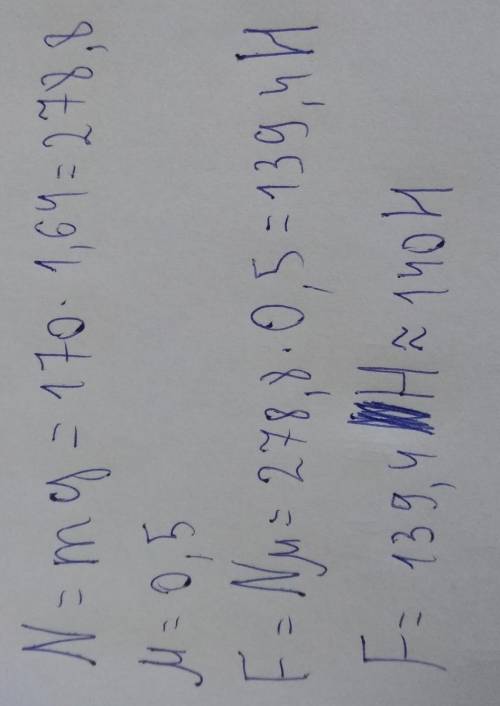 N = mg = 170 · 1,64 = 278,8
μ = 0,5
F = Nμ = 278,8 · 0,5 = 139,4 Н
F = 139,4 Н ≈ 140 Н